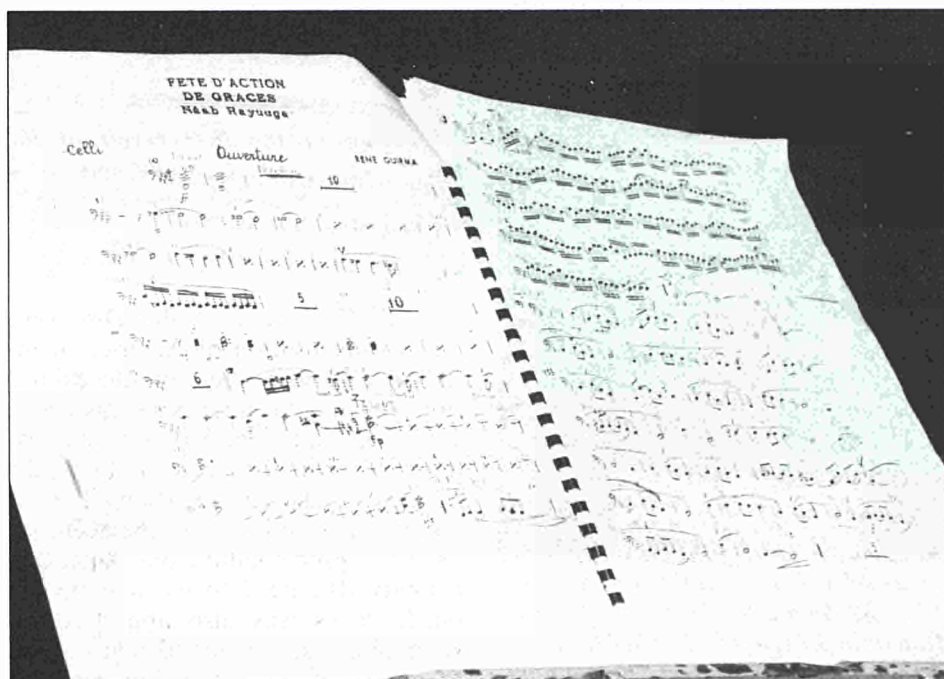 FETE D'ACTION
DE GRACES
Nââb Rayuuga
Celli
Ouverture
RENE GUIRMA
10
5
10
6